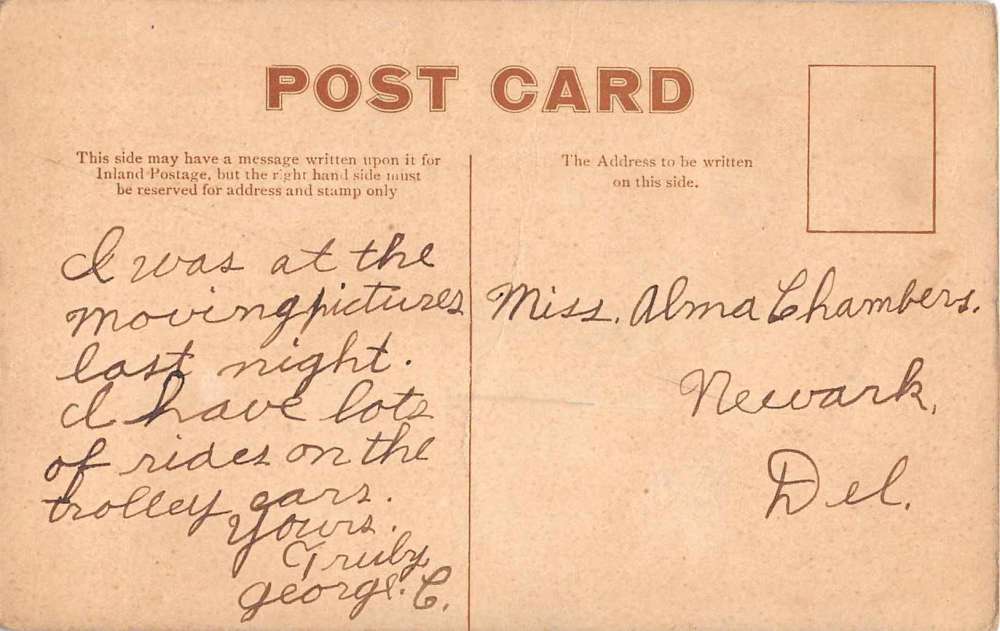 POST CARD
This side may have a message written upon it for
Inland Postage, but the right hand side must
be reserved for address and stamp only
The Address to be written
on this side.
I was at the
moving pictures
last night.
I have lots
of rides on the
trolley cars.
Yours.
Truly
George. C.
Miss. Alma Chambers.
Newark,
Del.